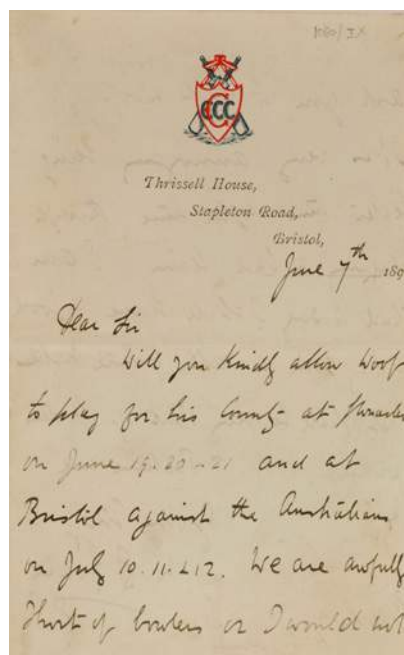 CCCC
Thrissell House,
Stapleton Road,
Bristol,
June 7th 189
Dear Sir
Will you kindly allow Woof
to play for his County at
on June 19. 20 - 21 and at
Bristol against the Australians
on July 10. 11. & 12. We are awfully
short of bowlers or I would not